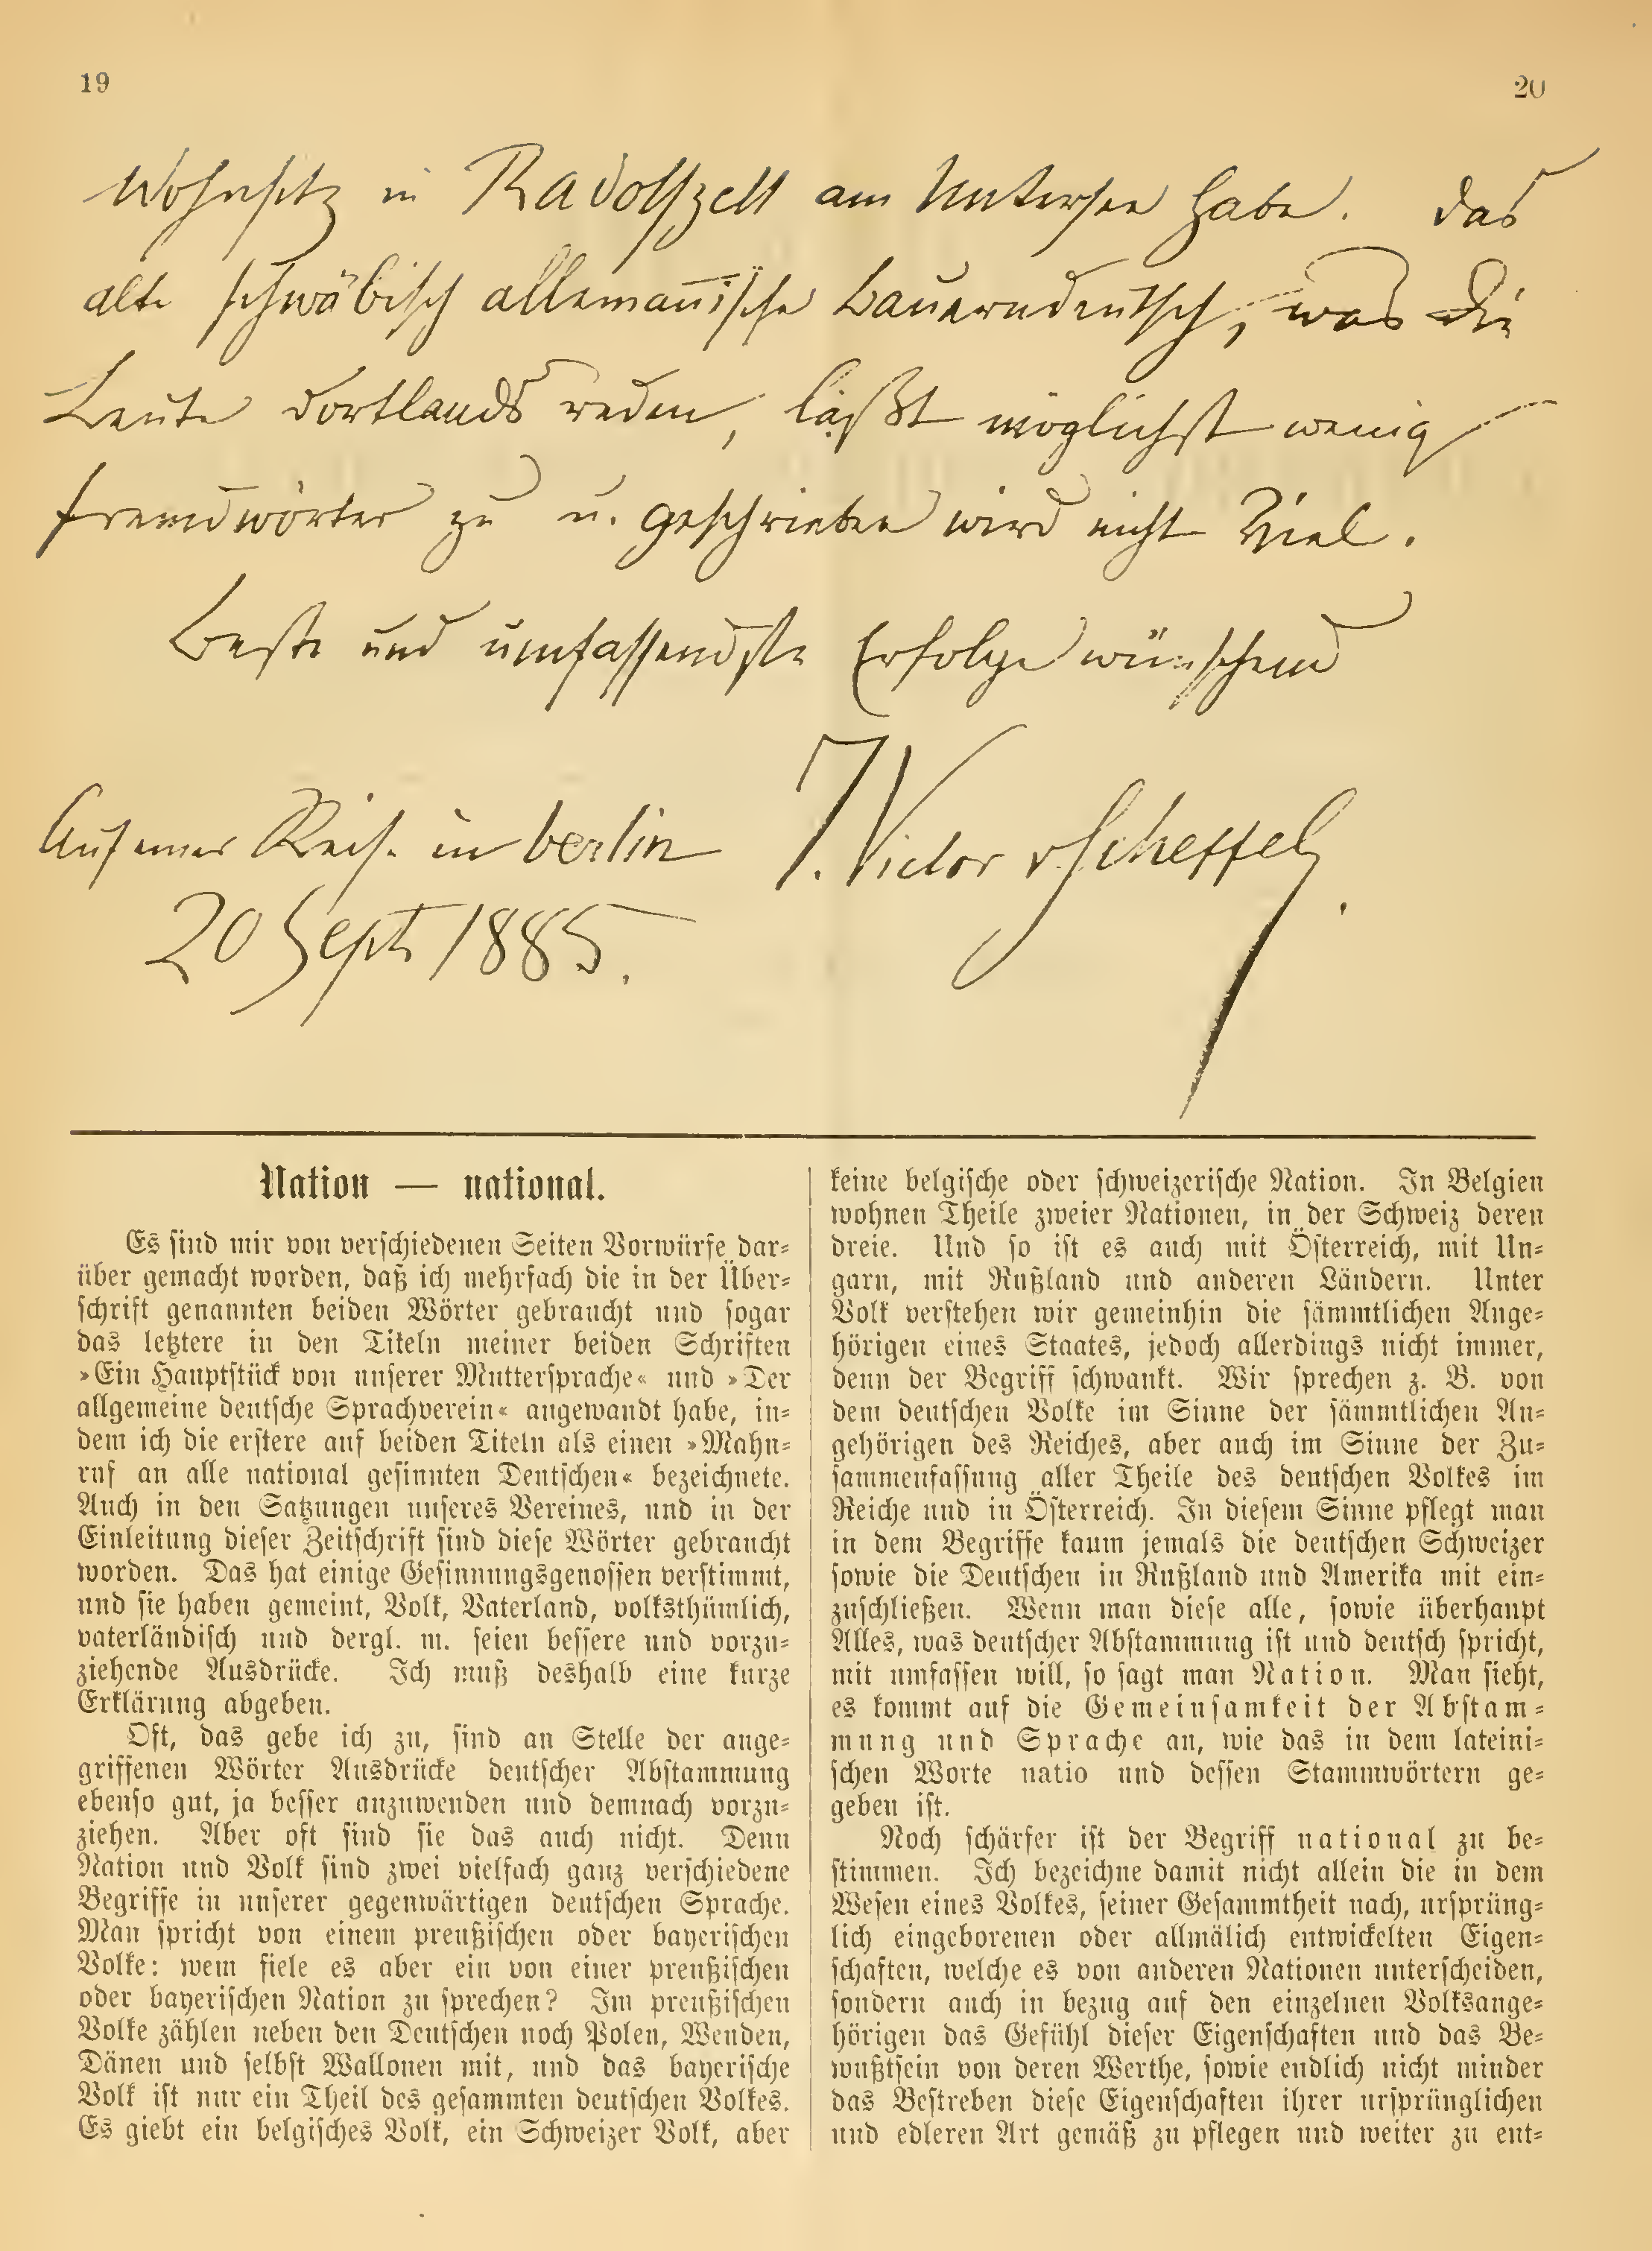 19
20
Wohnsitz in Radolfzell am Untersee habe. Das
alte schwäbisch allemanische Bauerndeutsch, was die
Leute dortlands reden, läßt möglichst wenig
Fremdwörter zu u. geschrieben wird nicht Viel.
Beste und umfassendste Erfolge wünschend
J. Victor v. Scheffel.
Auf einer Reise in Berlin
20 Sept 1885.
Nation — national.
Es sind mir von verschiedenen Seiten Vorwürfe dar-
über gemacht worden, daß ich mehrfach die in der Über-
schrift genannten beiden Wörter gebraucht und sogar
das letztere in den Titeln meiner beiden Schriften
»Ein Hauptstück von unserer Muttersprache« und »Der
allgemeine deutsche Sprachverein« angewandt habe, in-
dem ich die erstere auf beiden Titeln als einen »Mahn-
ruf an alle national gesinnten Deutschen« bezeichnete.
Auch in den Satzungen unseres Vereines, und in der
Einleitung dieser Zeitschrift sind diese Wörter gebraucht
worden. Das hat einige Gesinnungsgenossen verstimmt,
und sie haben gemeint, Volk, Vaterland, volksthümlich,
vaterländisch und dergl. m. seien bessere und vorzu-
ziehende Ausdrücke. Ich muß deshalb eine kurze
Erklärung abgeben.
Oft, das gebe ich zu, sind an Stelle der ange-
griffenen Wörter Ausdrücke deutscher Abstammung
ebenso gut, ja besser anzuwenden und demnach vorzu-
ziehen. Aber oft sind sie das auch nicht. Denn
Nation und Volk sind zwei vielfach ganz verschiedene
Begriffe in unserer gegenwärtigen deutschen Sprache.
Man spricht von einem preußischen oder bayerischen
Volke: wem fiele es aber ein von einer preußischen
oder bayerischen Nation zu sprechen? Im preußischen
Volke zählen neben den Deutschen noch Polen, Wenden,
Dänen und selbst Wallonen mit, und das bayerische
Volk ist nur ein Theil des gesammten deutschen Volkes.
Es giebt ein belgisches Volk, ein Schweizer Volk, aber
keine belgische oder schweizerische Nation. In Belgien
wohnen Theile zweier Nationen, in der Schweiz deren
dreie. Und so ist es auch mit Österreich, mit Un-
garn, mit Rußland und anderen Ländern. Unter
Volk verstehen wir gemeinhin die sämmtlichen Ange-
hörigen eines Staates, jedoch allerdings nicht immer,
denn der Begriff schwankt. Wir sprechen z. B. von
dem deutschen Volke im Sinne der sämmtlichen An-
gehörigen des Reiches, aber auch im Sinne der Zu-
sammenfassung aller Theile des deutschen Volkes im
Reiche und in Österreich. In diesem Sinne pflegt man
in dem Begriffe kaum jemals die deutschen Schweizer
sowie die Deutschen in Rußland und Amerika mit ein-
zuschließen. Wenn man diese alle, sowie überhaupt
Alles, was deutscher Abstammung ist und deutsch spricht,
mit umfassen will, so sagt man Nation. Man sieht,
es kommt auf die Gemeinsamkeit der Abstam-
mung und Sprache an, wie das in dem lateini-
schen Worte natio und dessen Stammwörtern ge-
geben ist.
Noch schärfer ist der Begriff national zu be-
stimmen. Ich bezeichne damit nicht allein die in dem
Wesen eines Volkes, seiner Gesammtheit nach, ursprüng-
lich eingeborenen oder allmälich entwickelten Eigen-
schaften, welche es von anderen Nationen unterscheiden,
sondern auch in bezug auf den einzelnen Volksange-
hörigen das Gefühl dieser Eigenschaften und das Be-
wußtsein von deren Werthe, sowie endlich nicht minder
das Bestreben diese Eigenschaften ihrer ursprünglichen
und edleren Art gemäß zu pflegen und weiter zu ent-